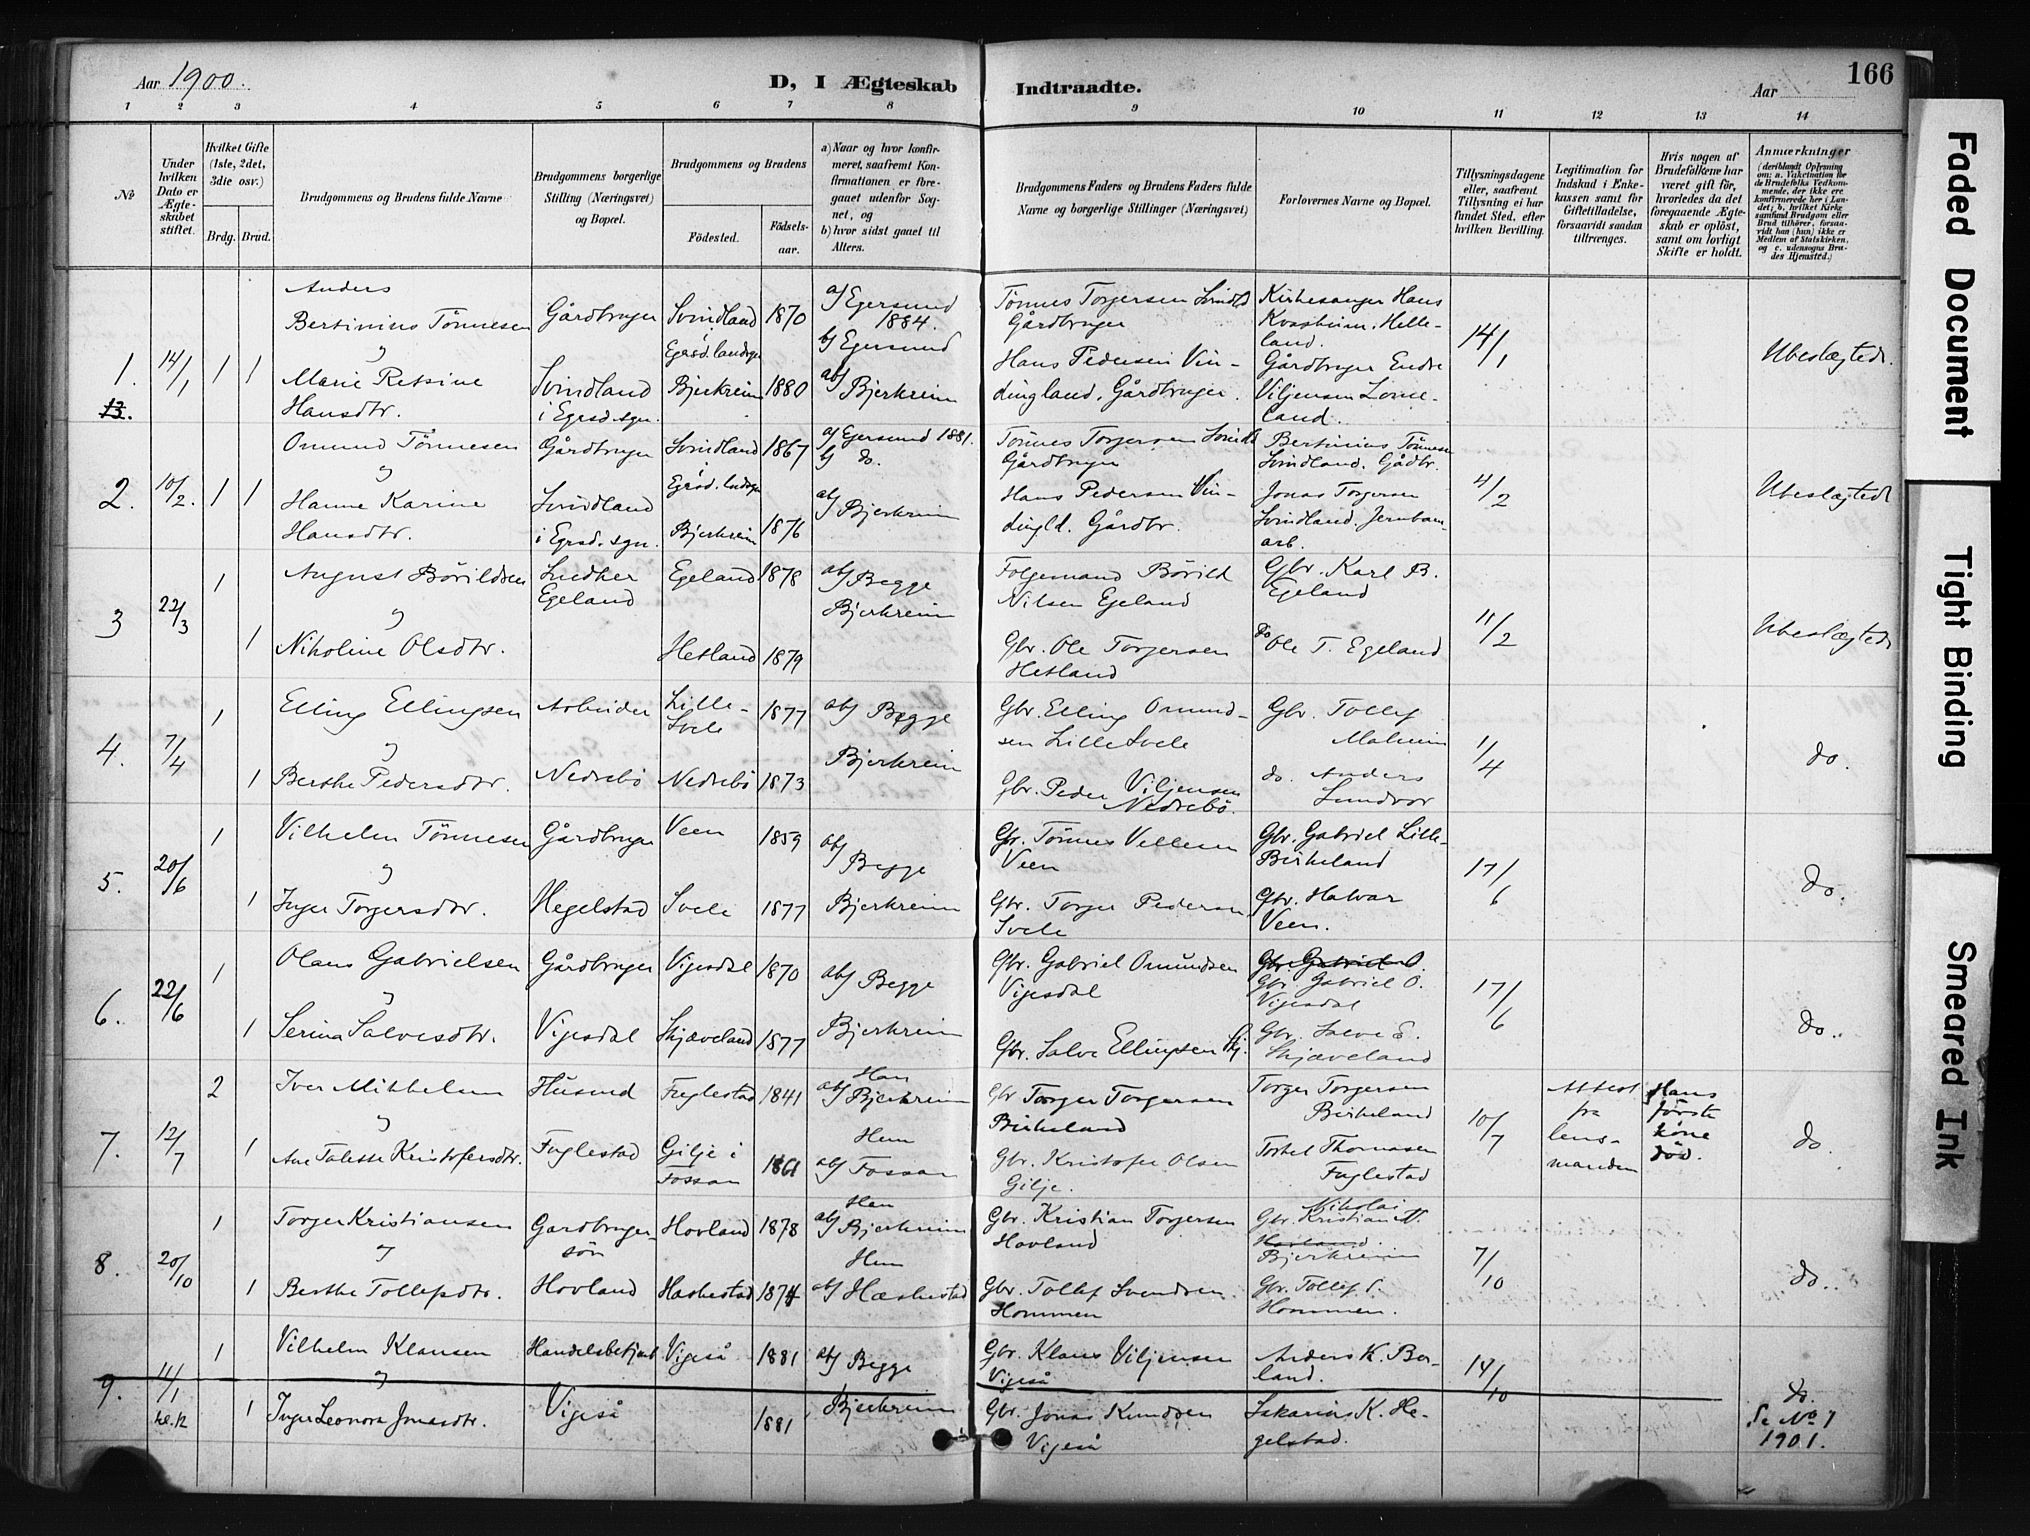 Aar 1900.
D, I Ægteskab Indtraadte.
Aar
166
1 2 3 4 5 6 7 8 9 10 11 12 13 14
No
Under hvilken Dato er Ægteskabet stiftet.
Hvilket Gifte (1ste, 2det, 3die osv.)
Brdg. Brud.
Brudgommens og Brudens fulde Navne
Brudgommens borgerlige Stilling (Næringsvei) og Bopæl.
Brudgommens og Brudens
Fødested.
Fødsels-aar.
a) Naar og hvor konfirmeret, saafremt Konfirmationen er foregaaet udenfor Sognet, og
b) hvor sidst gaaet til Alters.
Brudgommens Faders og Brudens Faders fulde Navne og borgerlige Stillinger (Næringsvei)
Forlovernes Navne og Bopæl.
Tillysningsdagene eller, saafremt Tillysning ei har fundet Sted, efter hvilken Bevilling.
Legitimation for Indskud i Enkekassen samt for Giftetilladelse, forsaavidt saadan tiltrænges.
Hvis nogen af Brudefolkene har været gift før, hvorledes da det foregaaende Ægteskab er opløst, samt om lovligt Skifte er holdt.
Anmærkninger
(deriblandt Oplysning om: a. Vakcination for de Brudefolks Vedkommende, der ikke ere konfirmerede her i Landet; b. hvilket Kirkesamfund Brudgom eller Brud tilhører, forsaavidt han (hun) ikke er Medlem af Statskirken, og c. udensogns Brudes Hjemsted.)
1. 13. 14/1 1 1
Anders
Bertinius Tønnesen
og
Marie Retsine
Hansdtr.
Gårdbruger
Svindland
i Egrsd. sgn.
Svindland
Egrsd. landsgn
Bjerkreim
1870
1880
a) Egersund
1884.
b) Egersund
ab) Bjerkreim
Tønnes Torgersen Svindld
Gårdbruger
Hans Pedersen Vin-
dingland. Gårdbruger.
Kirkesanger Hans
Kvasheim. Helle-
land.
Gårdbruger Endre
Viljensen Lome-
land.
14/1
Ubeslægtede.
2. 10/2. 1 1
Omund Tønnesen
og
Hanne Karine
Hansdtr.
Gårdbruger
Svindland
i Egrsd. sgn.
Svindland
Egrsd. landsgn
Bjerkreim
1867
1876
a) Egersund 1881.
b) do.
ab) Bjerkreim
Tønnes Torgersen Svindld
Gårdbruger
Hans Pedersen Vin-
dingld. Gårdbr.
Bertinius Tønnesen
Svindland. Gårdbr.
Jonas Torgersen
Svindland. Jernban-
arb.
4/2
Ubeslægtede
3 22/3 1 1
August Børildsen
og
Nikoline Olsdtr.
Snedker
Egeland
Egeland
Hetland
1878
1879
ab) Begge
Bjerkreim
Folgemand Børild
Nilsen Egeland
Gbr. Ole Torgersen
Hetland
Gbr. Karl B.
Egeland
do Ole T. Egeland
11/2
Ubeslægtede
4. 7/4 1 1
Elling Ellingsen
og
Berthe Pedersdtr.
Arbeider
Nedrebø
Lille-
Svele
Nedrebø
1877
1873
ab) Begge
Bjerkreim
Gbr. Elling Omund-
sen Lille Svele
Gbr. Peder Viljensen
Nedrebø.
Gbr. Tollef
Malmin
do. Anders
Lundvor
1/4
do.
5. 20/6 1 1
Vilhelm Tønnesen
og
Inger Torgersdtr.
Gårdbruger
Hegelstad
Veen
Svele
1859
1877
ab)
Begge
Bjerkreim
Gbr. Tønnes Vellesen
Veen
Gbr. Torger Pedersen
Svele
Gbr. Gabriel Lille-
Birkeland
Gbr. Halvar
Veen.
17/6
do.
6. 22/6 1 1
Olaus Gabrielsen
og
Serina Salvesdtr.
Gårdbruger
Vigesdal
Vigesdal
Skjæveland
1870
1877
ab) Begge
Bjerkreim
Gbr. Gabriel Omundsen
Vigesdal
Gbr. Salve Ellingsen Skj.
Gbr. Gabriel O.
Gbr. Gabriel O.
Vigesdal
Gbr. Salve E.
Skjæveland
17/6
do.
7. 12/7 2 1
Iver Mikkelsen
og
Ane Talette Kristofersdtr.
Husmd
Fuglestad
Fuglestad
Gilje i
Fossan
1841
1861
Han
ab) Bjerkreim
Hun
ab) Fossan
Gbr Torger Torgersen
Birkeland
Gbr. Kristofer Olsen
Gilje.
Torger Torgersen
Birkeland
Tortel Thomasen
Fuglestad
10/7
Attest
fra
lens-
manden
Hans
første
kone
død.
do.
8. 20/10 1 1
Torger Kristiansen
og
Berthe Tollefsdtr.
Gardbruger-
søn
Hovland
Hovland
Haskestad
1878
1874
Han
ab) Bjerkreim
Hun
ab) Hæskestad
Gbr. Kristian Torgersen
Hovland
Gbr. Tollef Svendsen
Hommen
Nikolai
Gbr. Kristian N.
Hovland.
Bjerkreim
Gbr. Tollef S.
Hommen.
7/10
do.
9. 11/1 kl. 12 1 1
Vilhelm Klausen
og
Inger Leonora Jonasdtr.
Handelsbetjent
Vigeså
Vigeså
1881
1881
ab) Begge
Bjerkreim
Gbr. Klaus Viljensen
Vigeså
Gbr. Jonas Knudsen
Vigeså
Anders K. Ber-
land.
Sakarias K. He-
gelstad.
14/10
do.
Se No 7
1901.
Faded Document
Tight Binding
Smeared Ink